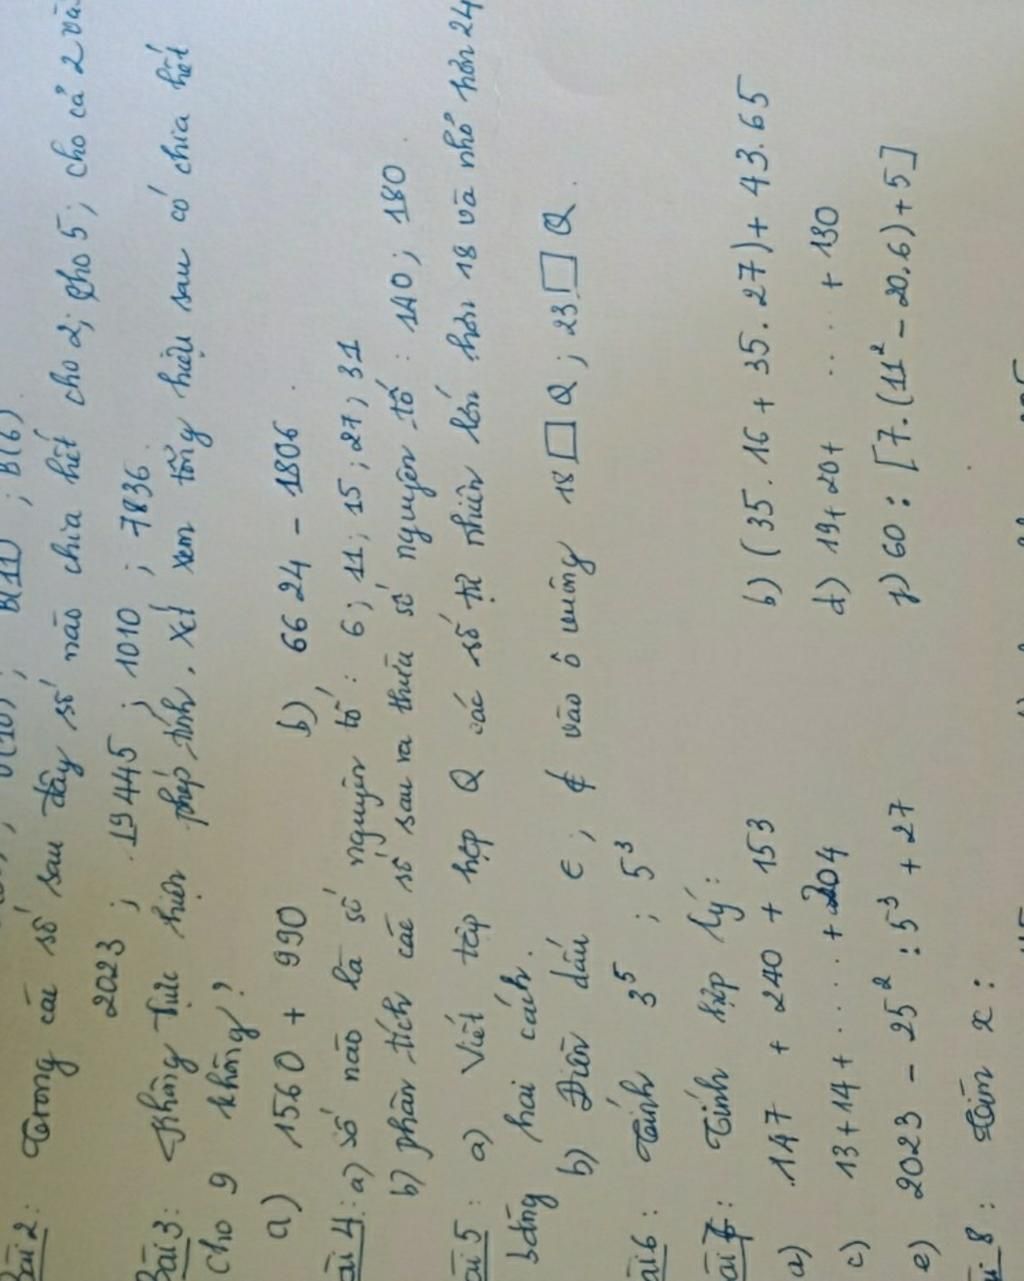 B(11) ; B(6)
Bài 2: Trong các số sau đây số nào chia hết cho 2; cho 5; cho cả 2 và
2023 ; 19445 ; 1010 ; 7836
Bài 3: Không thực hiện phép tính. Xét xem tổng hiệu sau có chia hết
cho 9 không?
a) 1560 + 990 b) 6624 - 1806.
ài 4: a) số nào là số nguyên tố: 6; 11; 15; 27; 31
b) phân tích các số sau ra thừa số nguyên tố: 140; 180
ài 5: a) Viết tập hợp Q các số tự nhiên lớn hơn 18 và nhỏ hơn 24
bằng hai cách.
b) Điền dấu ∈; ∉ vào ô vuông 18 □ Q ; 23 □ Q.
ài 6: Tính 3⁵ ; 5³
ài 7: Tính hợp lý:
a) 147 + 240 + 153 b) (35.16 + 35.27) + 43.65
c) 13+14+ .... + 204 d) 19+20+ .... + 130
e) 2023 - 25² : 5³ + 27 f) 60 : [7.(11² - 20.6)+5]
i 8: Tìm x: